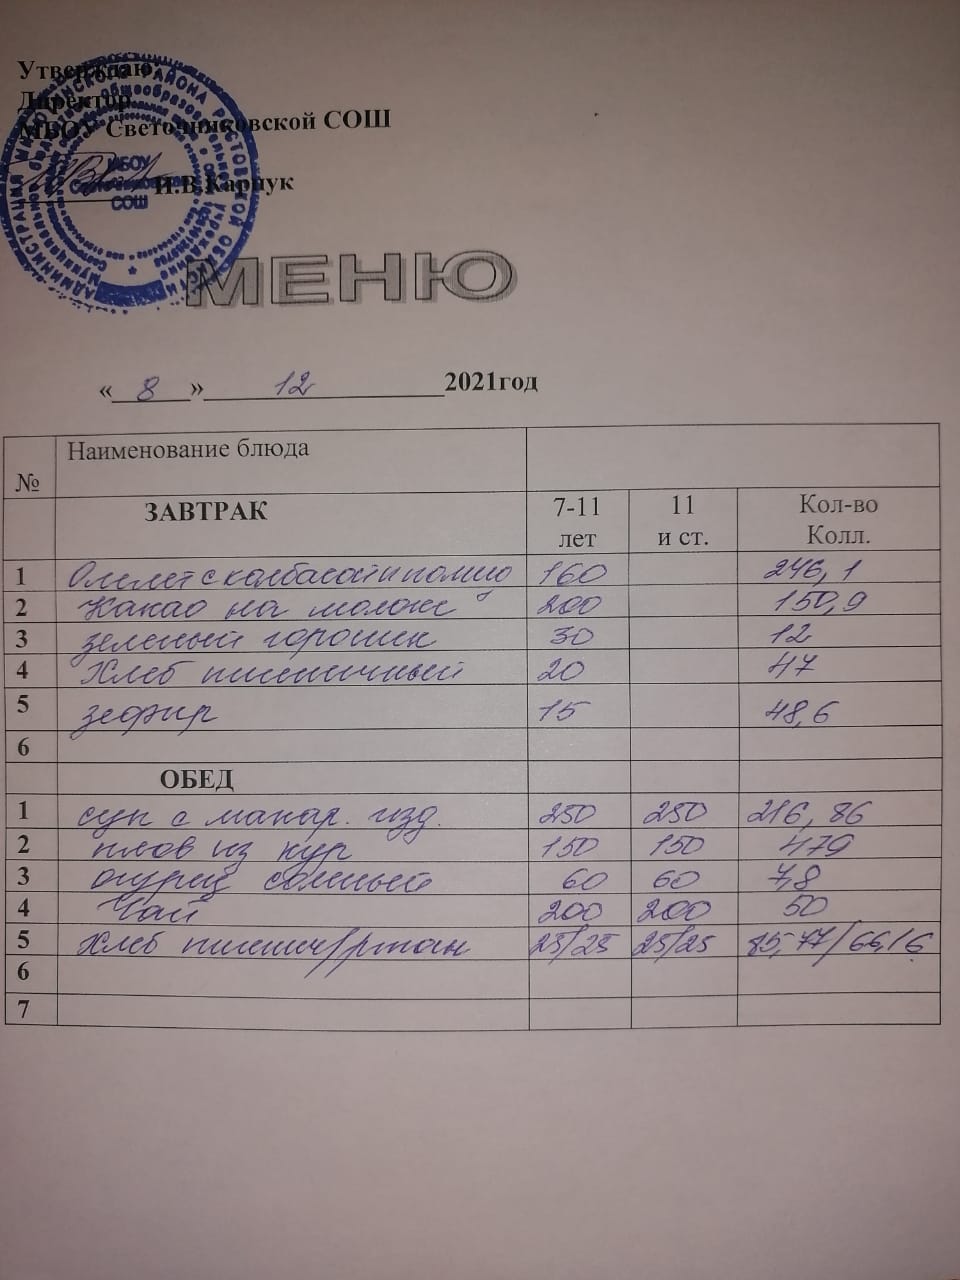 Утверждаю:
Директор
МБОУ Светочниковской СОШ
И.В.Карпук
АДМИНИСТРАЦИЯ МИЛЛЮТИНСКОГО РАЙОНА РОСТОВСКОЙ ОБЛАСТИ
МБОУ
СОШ
МЕНЮ
« 8 » 12 2021год
№ Наименование блюда
ЗАВТРАК 7-11 лет 11 и ст. Кол-во Колл.
1 Омлет с колбасой и 160 246,1
2 Какао на молоке 200 150,9
3 зеленый горошек 30 12
4 Хлеб пшеничный 20 47
5 зефир 15 48,6
6
ОБЕД
1 суп с макар. изд. 250 250 216,86
2 плов из кур 150 150 479
3 огурец соленый 60 60 7,8
4 Чай 200 200 50
5 Хлеб пшенич/ржан 25/25 25/25 85,77/66,16
6
7